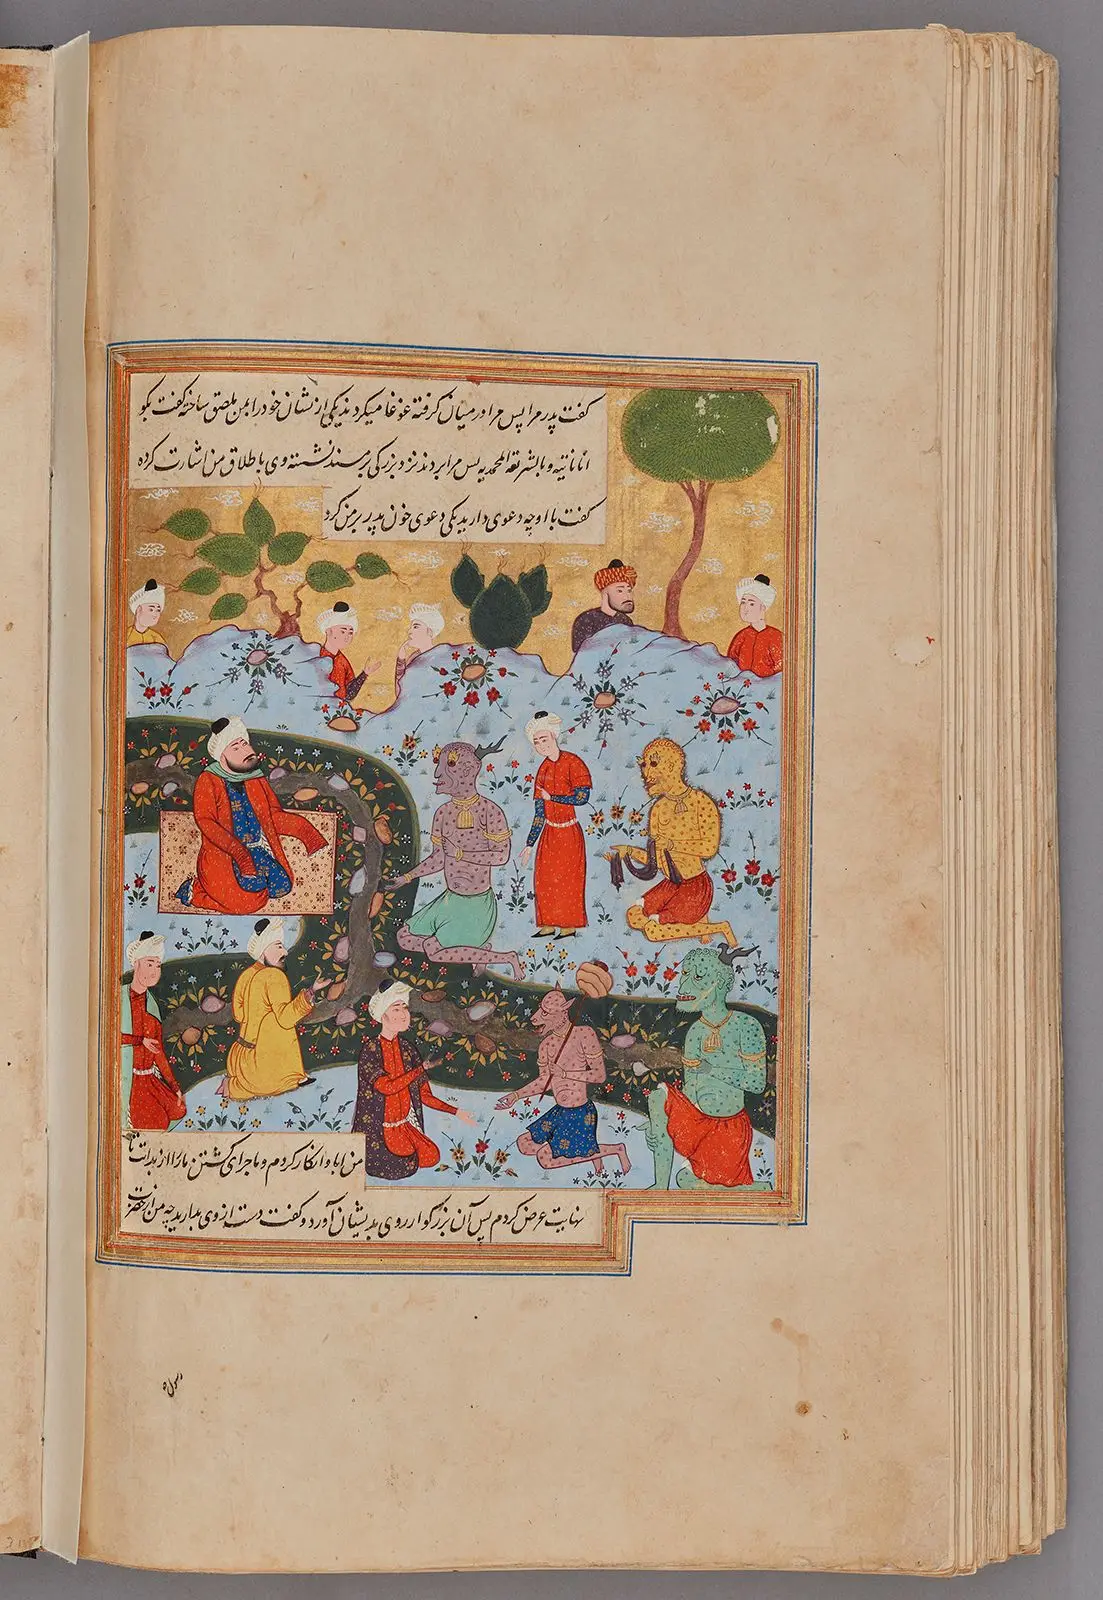 گفت پدر مرا پس مرا در میان گرفته غوغا میکردند یکی از نشان خود را بمن ملصق ساخته گفت بگو
انا بالله و بالشریعه المحمدیه پس مرا بردند نزد بزرگی بر مسند نشسته وی باطلاق من اشارت کرده
گفت با او چه دعوی دارید یکی دعوی خون پدر بر من کرد
من ابا و انکار کردم و ماجرای کشتن مار را از بدات تا
نهایت عرض کردم پس آن بزرگوار روی بدیشان آورد و گفت دست از وی بدارید چه من از حضرت
رسول